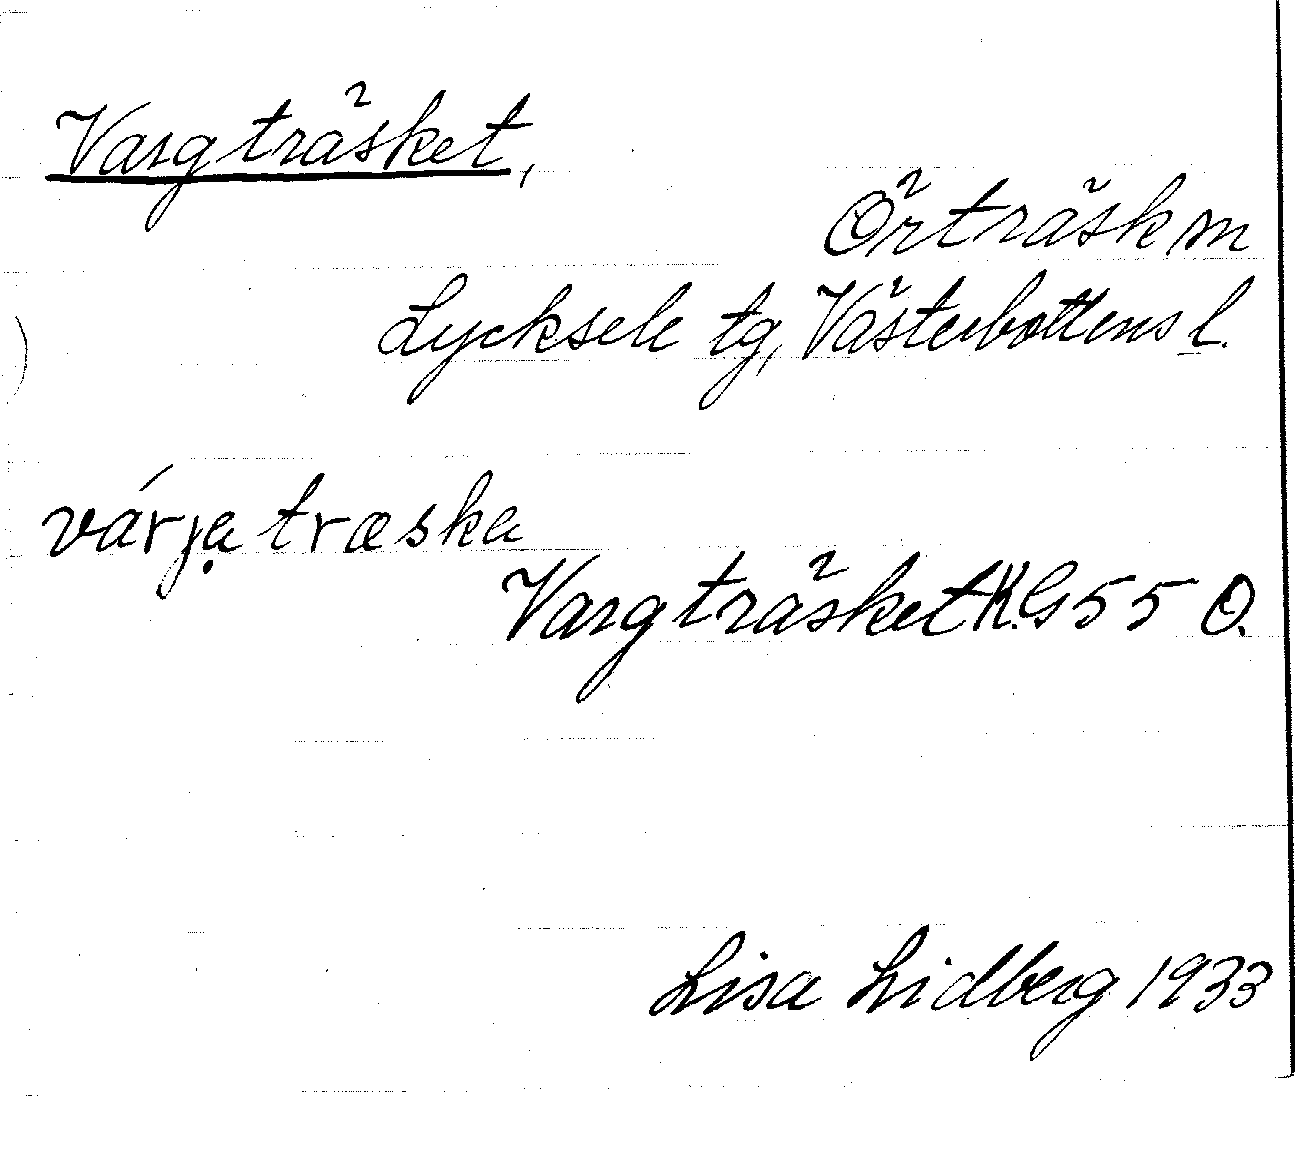 Vargträsket,
Örträsk sn
Lycksele tg, Västerbottens l.
várja̤ træska
Vargträsket K.G 55 O.
Lisa Lidberg 1933